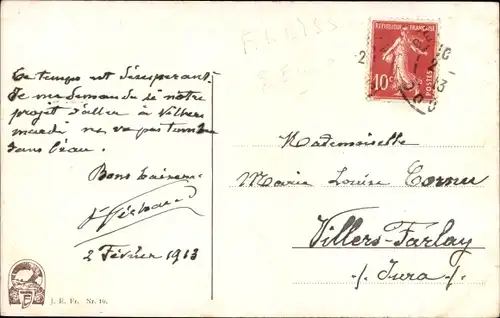 REPUBLIQUE FRANÇAISE
10c
POSTES
Ce temps est désespérant.
Je me demande si notre
projet d'aller à Villers
mardi ne va pas tomber
dans l'eau.
Bons baisers
2 Février 1913
Mademoiselle
Marie Louise Cornu
Villers-Farlay
-/. Jura /-
J. R. Fr. Nr. 10.